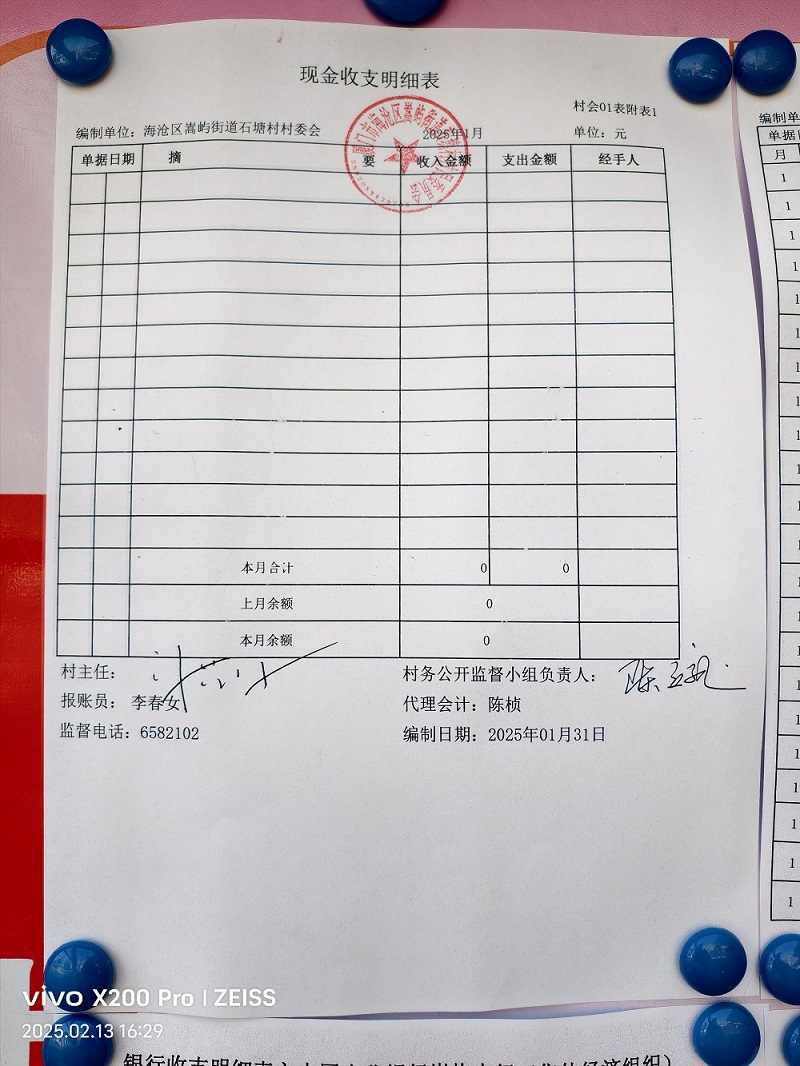 现金收支明细表
村会01表附表1
编制单位：海沧区嵩屿街道石塘村村委会 2025年1月 单位：元
单据日期 摘 要 收入金额 支出金额 经手人
本月合计 0 0
上月余额 0
本月余额 0
村主任： 村务公开监督小组负责人：
报账员：李春女 代理会计：陈桢
监督电话：6582102 编制日期：2025年01月31日
编制单
单据
月
1
1
1
1
1
1
1
1
1
1
1
1
1
1
1
1
1
1
1
vivo X200 Pro | ZEISS
2025.02.13 16:29
银行收支明细表